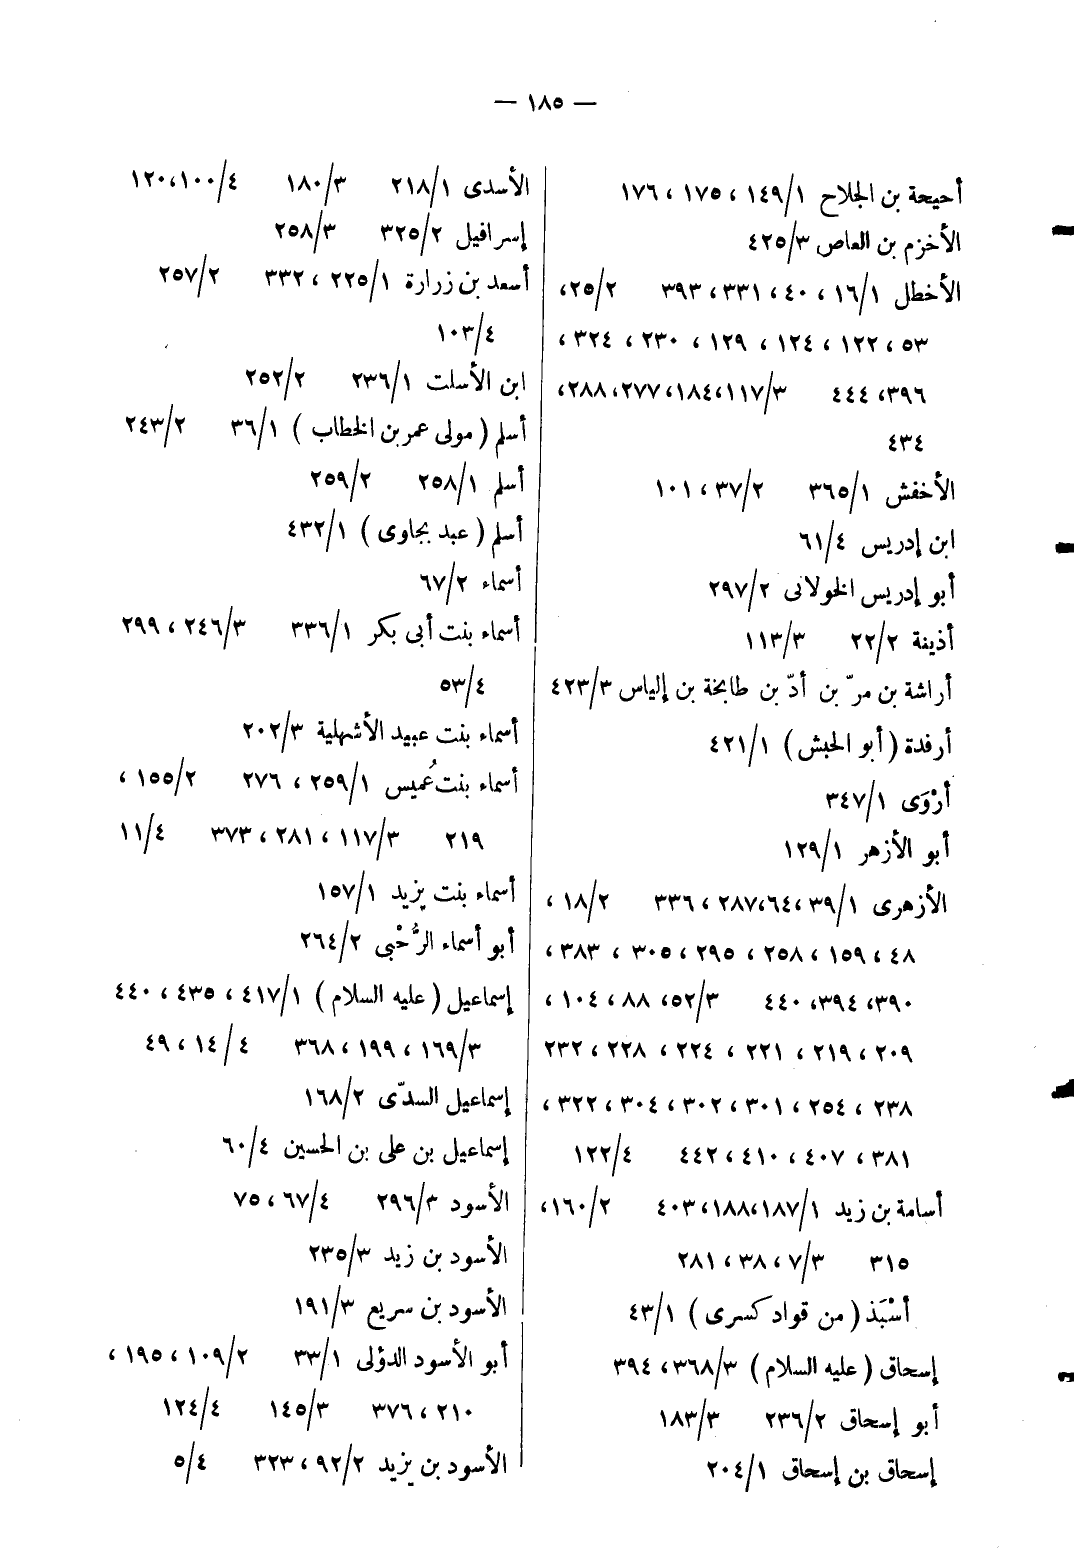 — ١٨٥ —
أحيحة بن الجلاح ١/١٤٩ ، ١٧٥ ، ١٧٦
الأخزم بن العاص ٣/٤٢٥
الأخطل ١/١٦ ، ٤٠ ، ٣٣١ ، ٣٩٣ ٢/٢٥،
٥٣ ، ١٢٢ ، ١٢٤ ، ١٢٩ ، ٢٣٠ ، ٣٢٤ ،
٣٩٦، ٤٤٤ ٣/١١٧،١٨٤،٢٧٧،٢٨٨،
٤٣٤
الأخفش ١/٣٦٥ ٢/٣٧ ، ١٠١
ابن إدريس ٤/٦١
أبو إدريس الخولانى ٢/٢٩٧
أذينة ٢/٢٢ ٣/١١٣
أراشة بن مرّ بن أدّ بن طابخة بن إلياس ٣/٤٢٣
أرفدة ( أبو الحبش ) ١/٤٢١
أرْوَى ١/٣٤٧
أبو الأزهر ١/١٢٩
الأزهرى ١/٣٩ ،٦٤،٢٨٧ ، ٣٣٦ ٢/١٨ ،
٤٨ ، ١٥٩ ، ٢٥٨ ، ٢٩٥ ، ٣٠٥ ، ٣٨٣ ،
٣٩٠ ،٣٩٤ ، ٤٤٠ ٣/٥٢، ٨٨ ، ١٠٤ ،
٢٠٩ ، ٢١٩ ، ٢٢١ ، ٢٢٤ ، ٢٢٨ ، ٢٣٢
٢٣٨ ، ٢٥٤ ، ٣٠١ ، ٣٠٢ ، ٣٠٤ ، ٣٢٢ ،
٣٨١ ، ٤٠٧ ، ٤١٠ ، ٤٤٢ ٤/١٢٢
أسامة بن زيد ١/١٨٧،١٨٨ ، ٤٠٣ ٢/١٦٠،
٣١٥ ٣/٧ ، ٣٨ ، ٢٨١
أسْبَذ ( من قواد كسرى ) ١/٤٣
إسحاق ( عليه السلام ) ٣/٣٦٨ ، ٣٩٤
أبو إسحاق ٢/٢٣٦ ٣/١٨٣
إسحاق بن إسحاق ١/٢٠٤
الأسدى ١/٢١٨ ٣/١٨٠ ٤/١٠٠،١٢٠
إسرافيل ٢/٣٢٥ ٣/٢٥٨
أسعد بن زرارة ١/٢٢٥ ، ٣٣٢ ٢/٢٥٧
٤/١٠٣
ابن الأسلت ١/٢٣٦ ٢/٢٥٢
أسلم ( مولى عمر بن الخطاب ) ١/٣٦ ٢/٢٤٣
أسلم ١/٢٥٨ ٢/٢٥٩
أسلم ( عبد بجاوى ) ١/٤٣٢
أسماء ٢/٦٧
أسماء بنت أبى بكر ١/٣٣٦ ٣/٢٤٦ ، ٢٩٩
٤/٥٣
أسماء بنت عبيد الأشهلية ٣/٢٠٢
أسماء بنت عُميس ١/٢٥٩ ، ٢٧٦ ٢/١٥٥ ،
٢١٩ ٣/١١٧ ، ٢٨١ ، ٣٧٣ ٤/١١
أسماء بنت يزيد ١/١٥٧
أبو أسماء الرُّحْبى ٢/٢٦٤
إسماعيل ( عليه السلام ) ١/٤١٧ ، ٤٣٥ ، ٤٤٠
٣/١٦٩ ، ١٩٩ ، ٣٦٨ ٤/١٤ ، ٤٩
إسماعيل السدّى ٢/١٦٨
إسماعيل بن على بن الحسين ٤/٦٠
الأسود ٣/٢٩٦ ٤/٦٧ ، ٧٥
الأسود بن زيد ٣/٢٣٥
الأسود بن سريع ٣/١٩١
أبو الأسود الدؤلى ١/٣٣ ٢/١٠٩ ، ١٩٥ ،
٢١٠ ، ٣٧٦ ٣/١٤٥ ٤/١٢٤
الأسود بن يزيد ٢/٩٢ ، ٣٢٣ ٤/٥